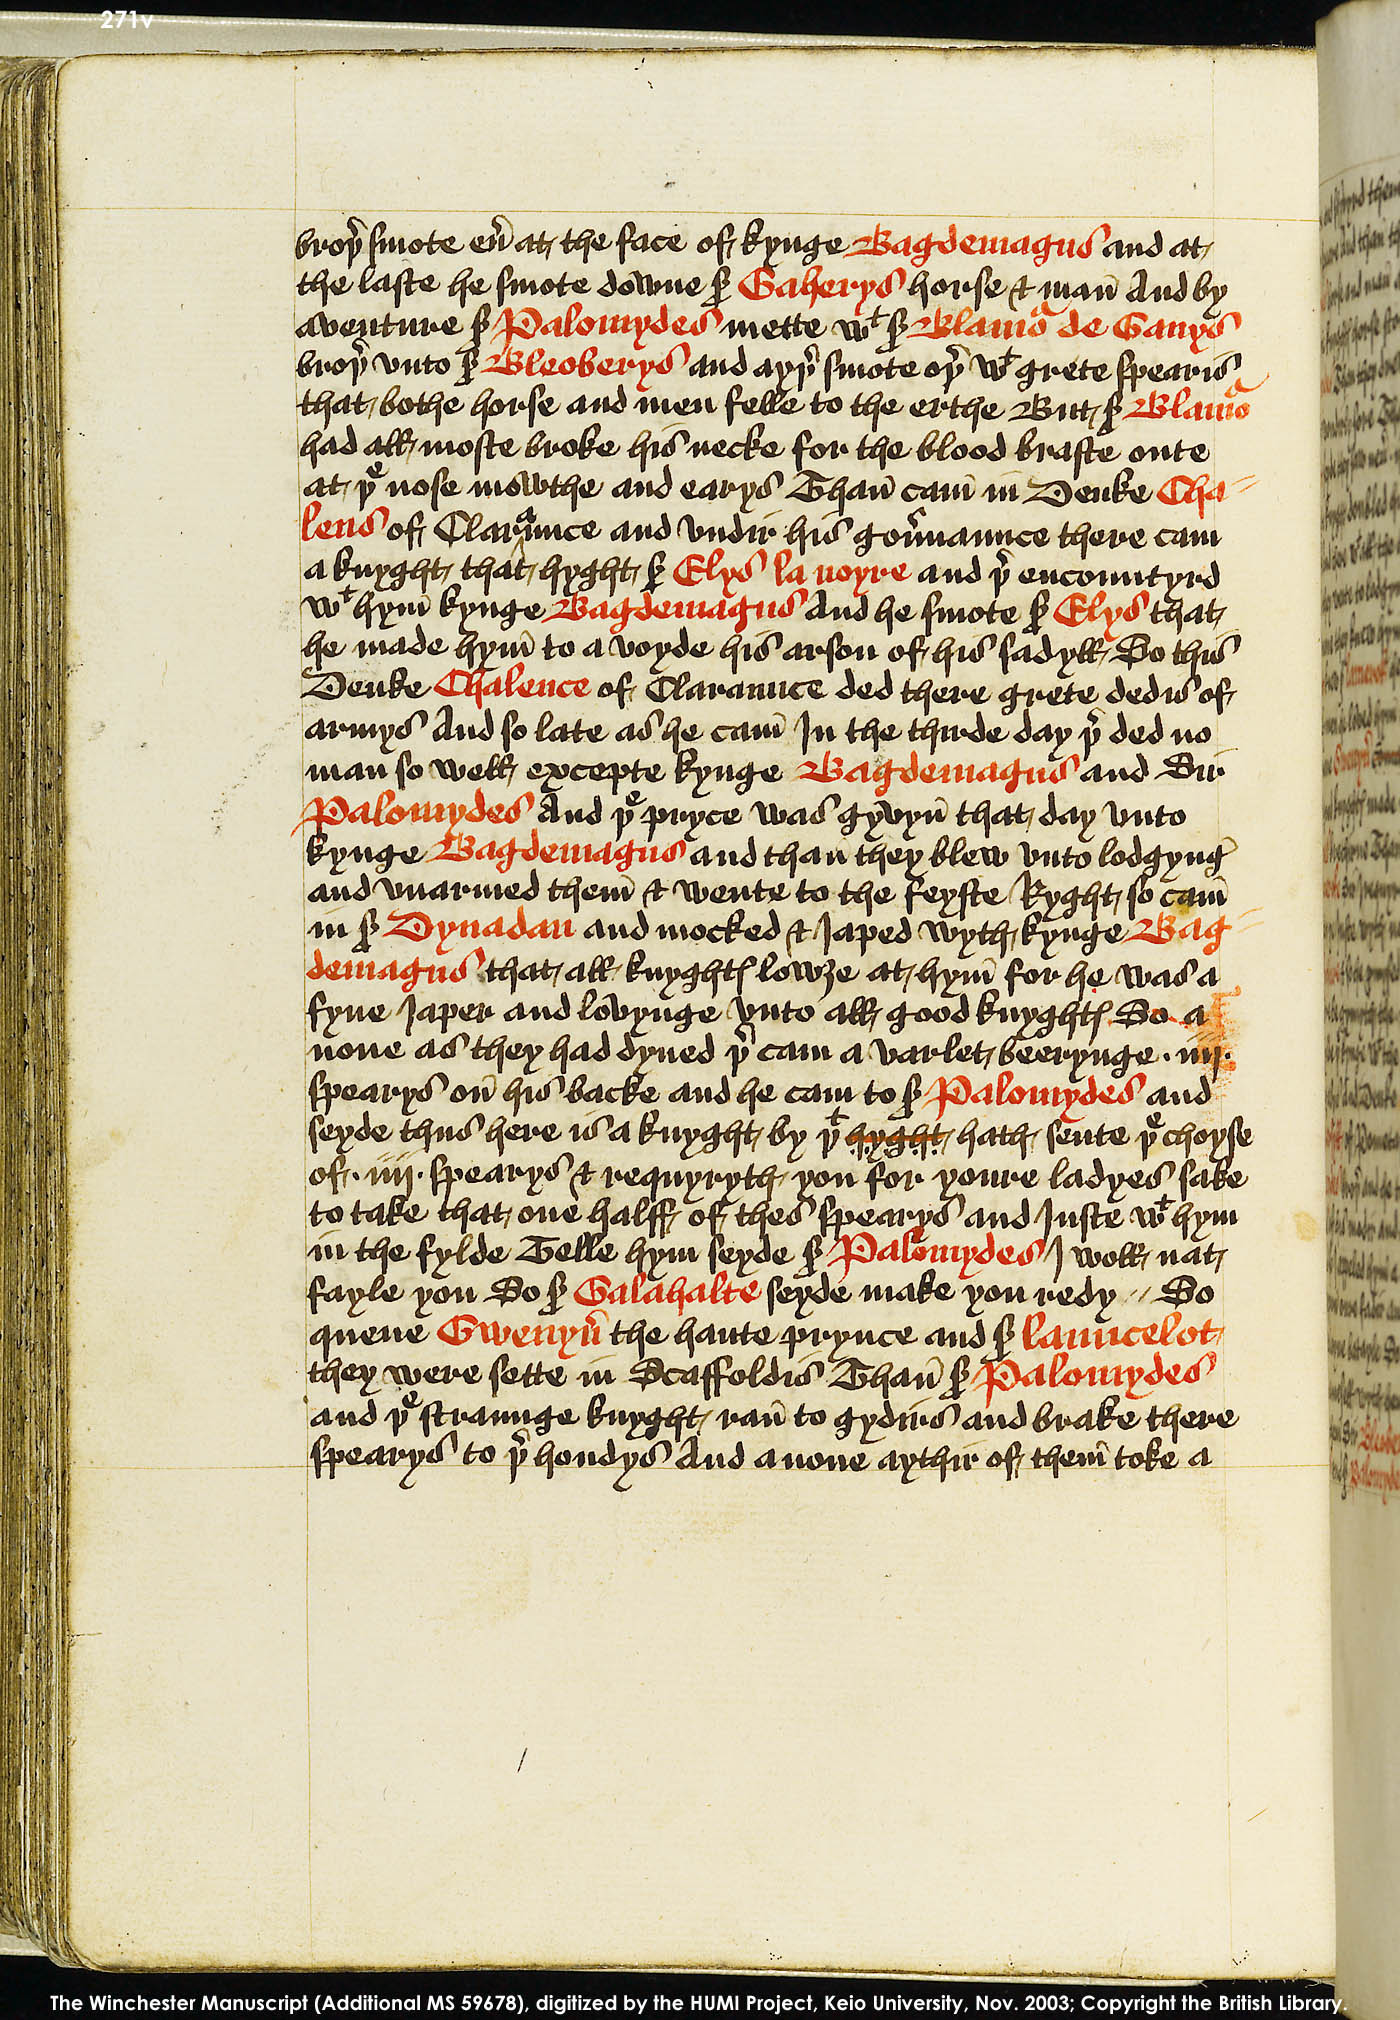 271v
broþ̉ smote eủ at the face of kynge Bagdemagus and at
the laste he smote downe ẜ Gaherys horse & man̄ And by
aventure ẜ Palomydes mette wᵗ ẜ Blamoᵃ de Ganys
broþ̉ vnto ẜ Bleoberys and ayþ̉ smote oþ̉ wᵗ grete spearis
that bothe horse and men felle to the erthe But ẜ Blamoᵃ
had all moste broke his necke for the blood braste oute
at þᵉ nose mowthe and earys Than̄ cam̄ in Deuke Cha⸗
lens of Claraunce and vndir his goủnaunce there cam
a knyght that hyght ẜ Elys la noyre and þ̉ encountyrd
wᵗ hym̄ kynge Bagdemagus And he smote ẜ Elys that
he made hym̄ to a voyde his arson of his sadyll So this
Deuke Chalence of Claraunce ded there grete dedis of
armys And so late as he cam̄ In the thirde day þ̉ ded no
man so well excepte kynge Bagdemagus and Sir
Palomydes And þᵉ pryce was gyvyn̄ that day vnto
kynge Bagdemagus and than̄ they blew vnto lodgyng̉
and vnarmed them̄ & wente to the feyste Ryght so cam̄
in ẜ Dynadan and mocked & Japed wyth kynge Bag⸗
demagus that all knyghtꝭ lowȝe at hym̄ for he was a
fyne Japer and lovynge vnto all good knyghtꝭ So a
none as they had dyned þ̉ cam a varlet beerynge ·iiij·
spearys on̄ his backe and he cam to ẜ Palomydes and
seyde thus here is a knyght by þᵗ hyght hath sente þᵉ choyse
of ·iiij· spearys & requyryth you for youre ladyes sake
to take that one halff of thes spearys and Juste wᵗ hym
in the fylde Telle hym seyde ẜ Palomydes I woll nat
fayle you So ẜ Galahalte seyde make you redy // So
quene Gwenyủ the haute prynce and ẜ launcelot
they were sette in Scaffoldis Than̄ ẜ Palomydes
and þᵉ straunge knyght ran̄ to gydirs and brake there
spearys to þ̉ hondys And anone aythir of them̄ toke a
The Winchester Manuscript (Additional MS 59678), digitized by the HUMI Project, Keio University, Nov. 2003; Copyright the British Library.